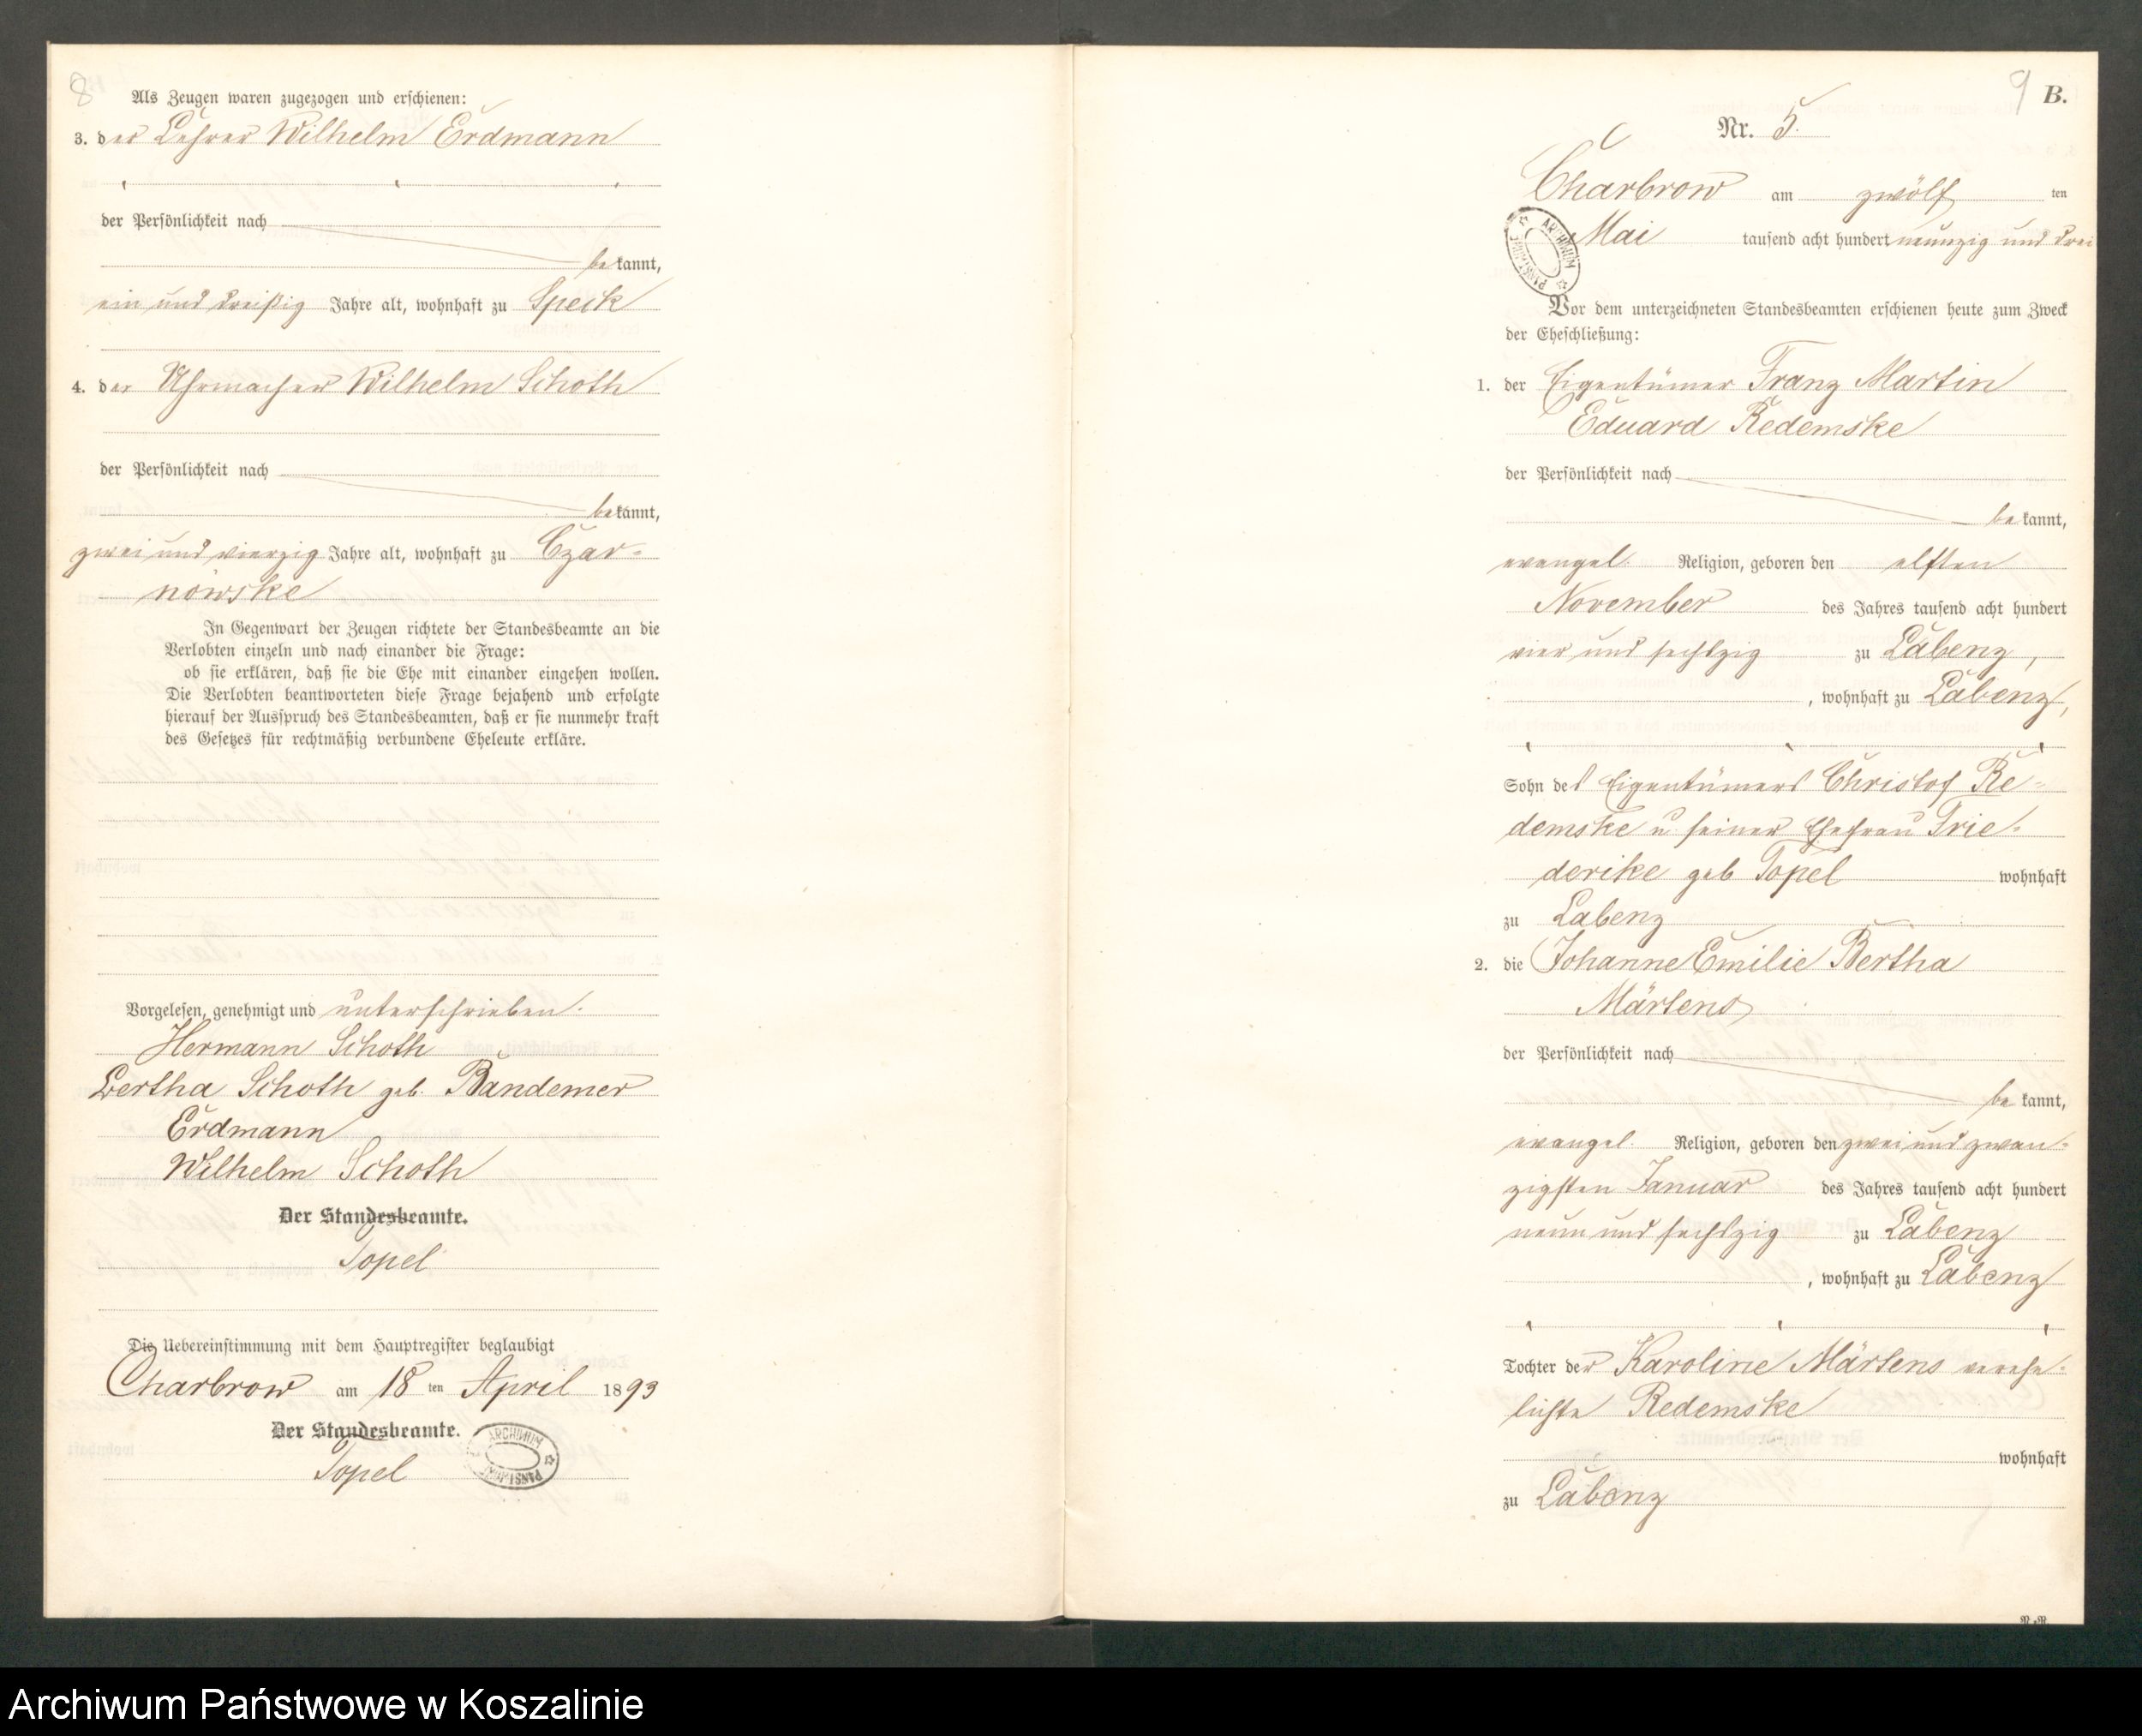 8
Als Zeugen waren zugezogen und erschienen:
3. der Lehrer Wilhelm Erdmann
der Persönlichkeit nach
bekannt,
ein und dreißig Jahre alt, wohnhaft zu Speck
4. der Uhrmacher Wilhelm Schoth
der Persönlichkeit nach
bekannt,
zwei und vierzig Jahre alt, wohnhaft zu Czar-
nowske
In Gegenwart der Zeugen richtete der Standesbeamte an die
Verlobten einzeln und nach einander die Frage:
ob sie erklären, daß sie die Ehe mit einander eingehen wollen.
Die Verlobten beantworteten diese Frage bejahend und erfolgte
hierauf der Ausspruch des Standesbeamten, daß er sie nunmehr kraft
des Gesetzes für rechtmäßig verbundene Eheleute erkläre.
Vorgelesen, genehmigt und unterschrieben.
Hermann Schoth
Bertha Schoth geb. Bandemer
Erdmann
Wilhelm Schoth
Der Standesbeamte.
Topel
Die Uebereinstimmung mit dem Hauptregister beglaubigt
Charbrow am 18 ten April 1893
Der Standesbeamte.
Topel
ARCHIWUM PAŃSTWOWE
9 B.
Nr. 5.
Charbrow am zwölf ten
Mai tausend acht hundert neunzig und drei
ARCHIWUM PAŃSTWOWE
Vor dem unterzeichneten Standesbeamten erschienen heute zum Zweck
der Eheschließung:
1. der Eigentümer Franz Martin
Eduard Redemske
der Persönlichkeit nach
bekannt,
evangel. Religion, geboren den elften
November des Jahres tausend acht hundert
vier und sechszig zu Labenz,
, wohnhaft zu Labenz,
Sohn des Eigentümers Christof Re-
demske u. seiner Ehefrau Frie-
derike geb Topel wohnhaft
zu Labenz
2. die Johanne Emilie Bertha
Märtens
der Persönlichkeit nach
bekannt,
evangel. Religion, geboren den zwei und zwan-
zigsten Januar des Jahres tausend acht hundert
neun und sechszig zu Labenz
, wohnhaft zu Labenz
Tochter der Karoline Märtens verehe-
lichte Redemske
wohnhaft
zu Labenz
Archiwum Państwowe w Koszalinie